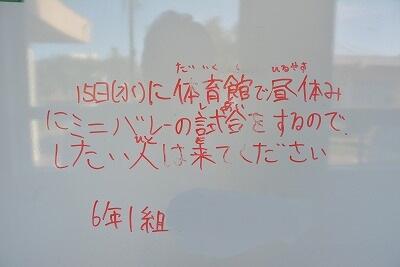 たいいく ひるやす
15日(水)に体育館で昼休み
しあい
にミニバレーの試合をするので
ひと き
したい人は来てください
6年1組